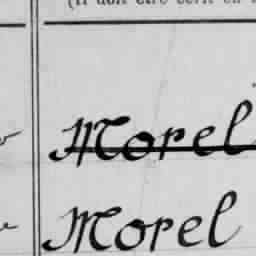 (Il doit être écrit en
Morel
Morel